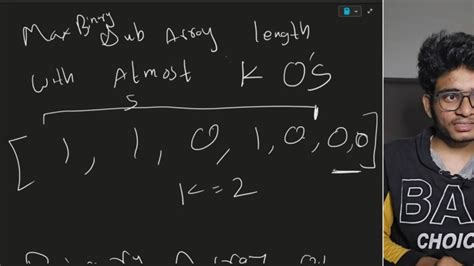 Max Binary Sub Array length
with Atmost K 0's
5
[ 1, 1, 0, 1, 0, 0, 0 ]
K = 2
BA
CHOIC